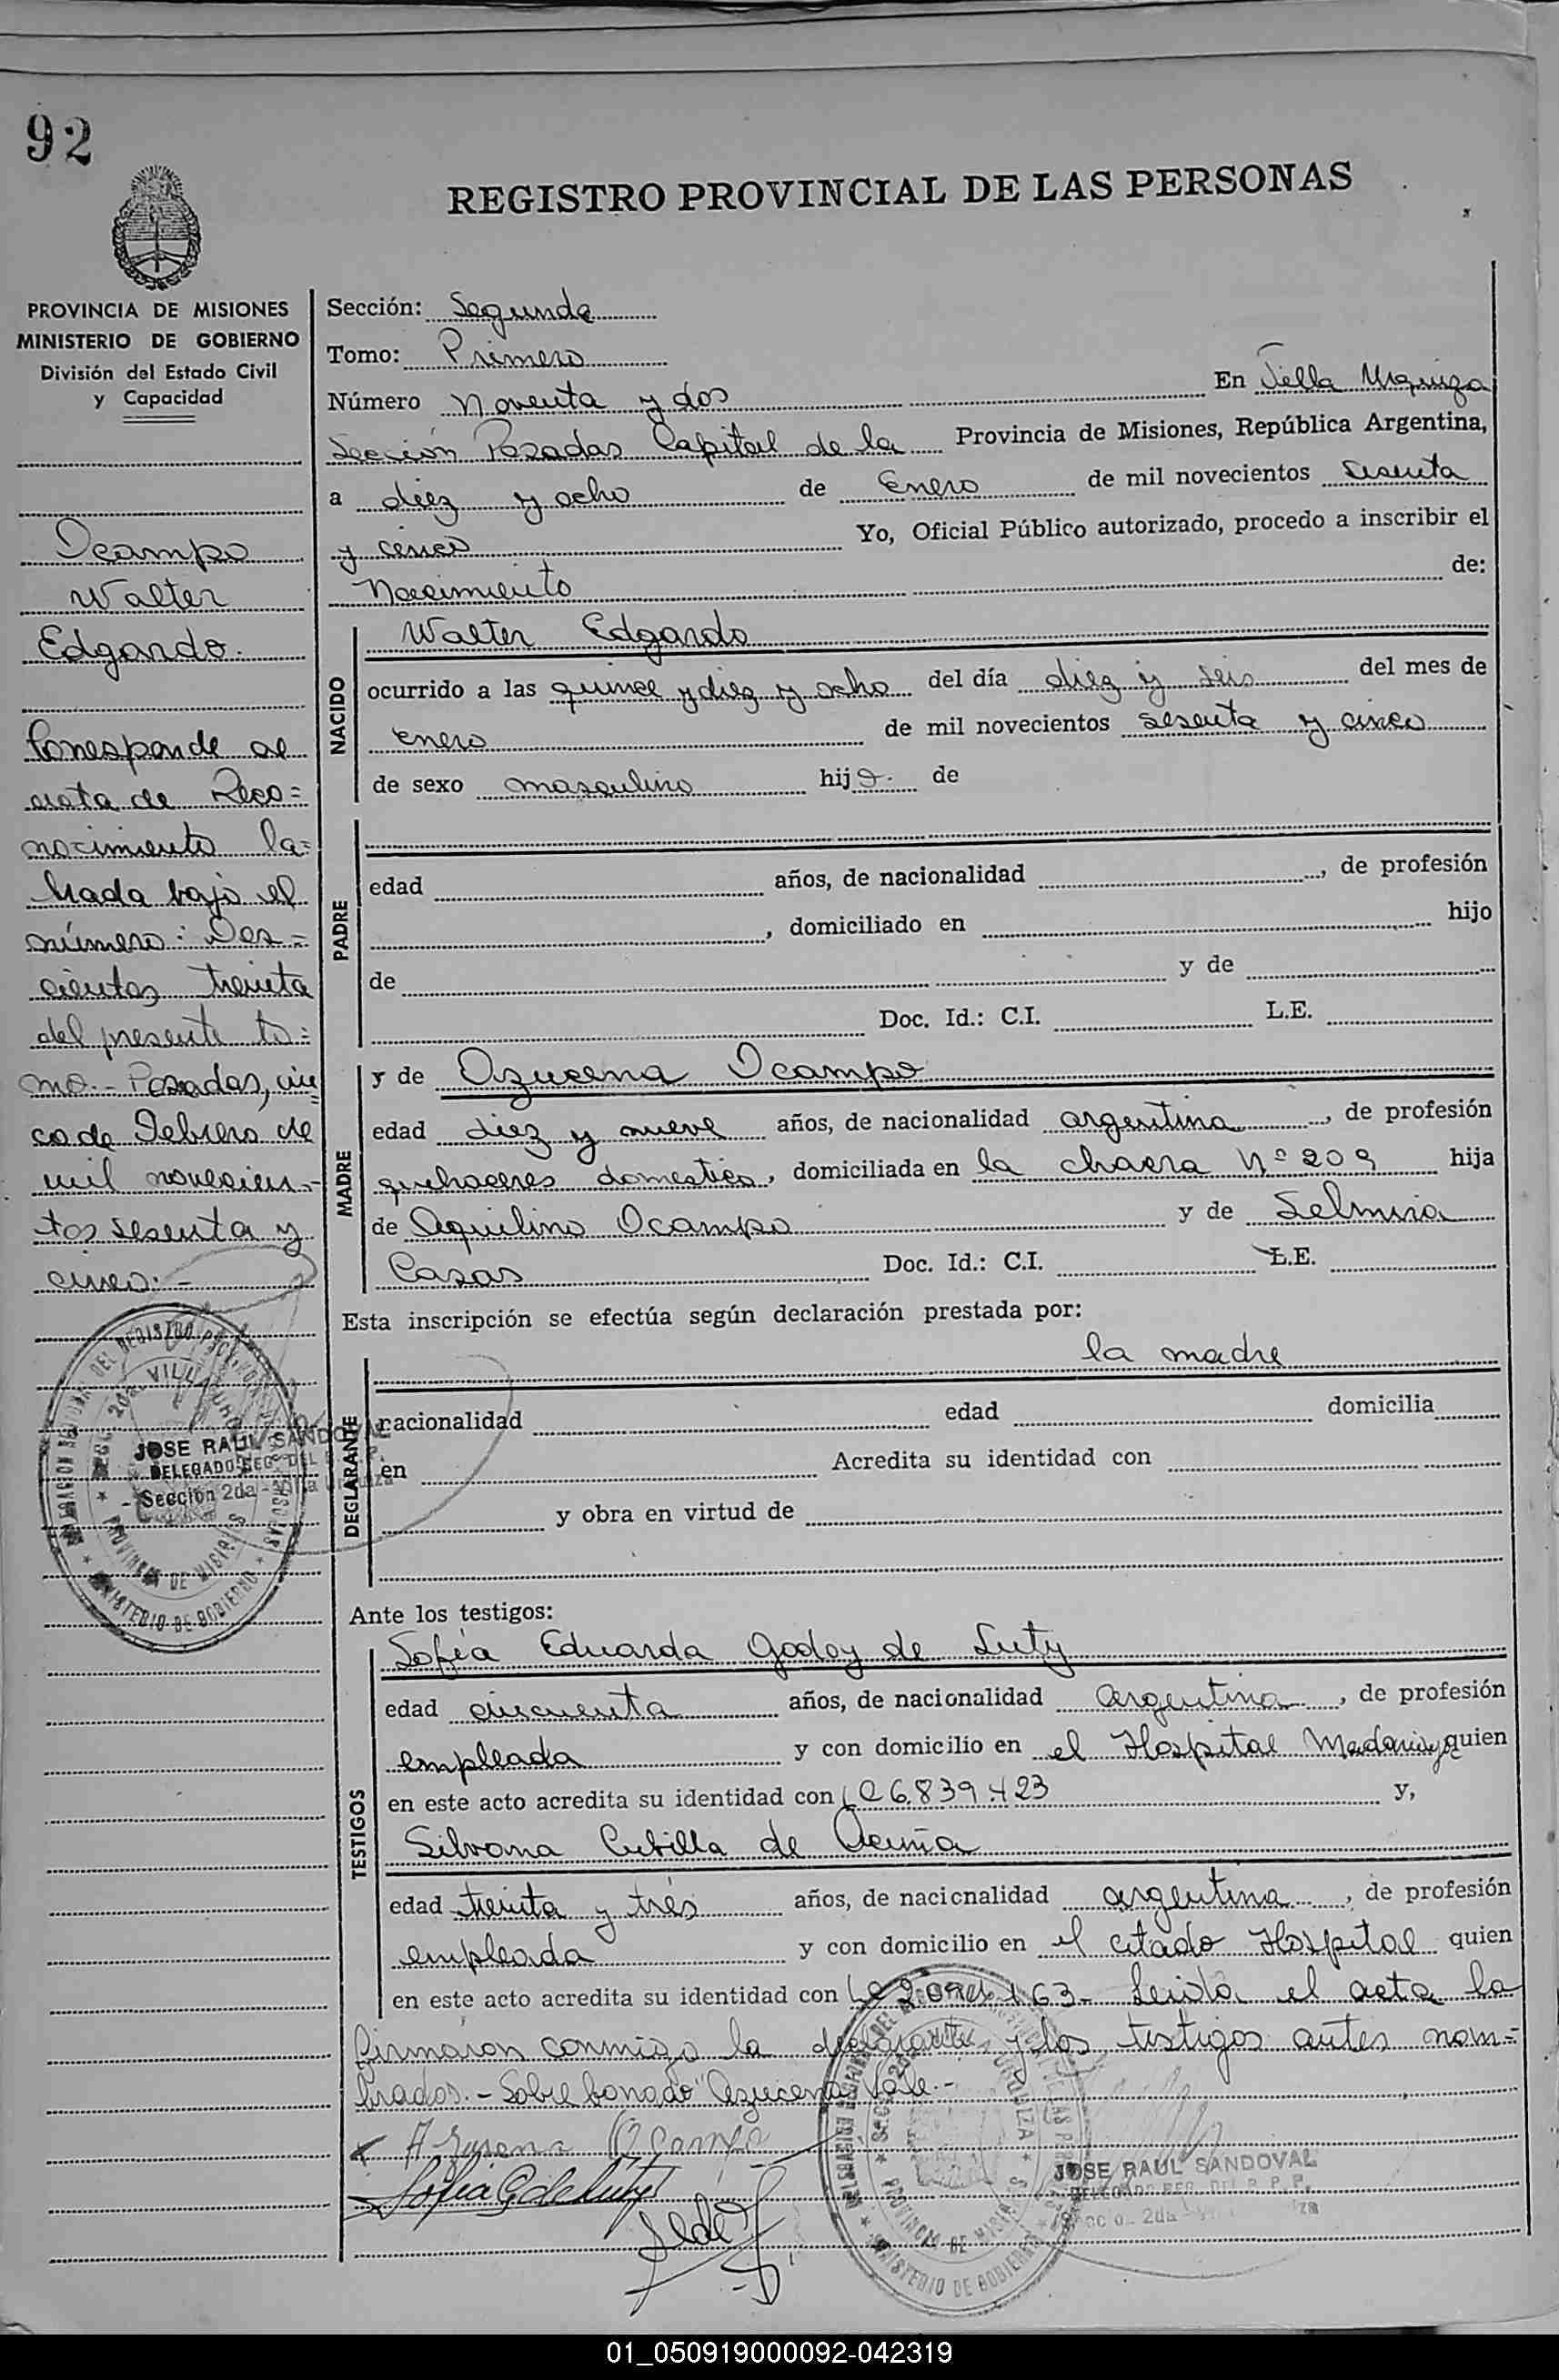 92
REGISTRO PROVINCIAL DE LAS PERSONAS
PROVINCIA DE MISIONES
MINISTERIO DE GOBIERNO
División del Estado Civil
y Capacidad
Ocampo
Walter
Edgardo.
Corresponde al
acta de Reco=
nocimiento la=
brada bajo el
número: Dos=
cientos treinta
del presente to=
mo.- Posadas, cin
co de Febrero de
mil novecien-
tos sesenta y
cinco.-
JOSE RAUL SANDOVAL
DELEGADO REG. DEL
- Sección 2da -
Sección: Segunda
Tomo: Primero
Número Noventa y dos En Villa Urquiza
Sección Posadas Capital de la Provincia de Misiones, República Argentina,
a diez y ocho de Enero de mil novecientos sesenta
y cinco Yo, Oficial Público autorizado, procedo a inscribir el
Nacimiento de:
NACIDO
Walter Edgardo
ocurrido a las quince y diez y ocho del día diez y seis del mes de
enero de mil novecientos sesenta y cinco
de sexo masculino hijo. de
PADRE
edad años, de nacionalidad , de profesión
, domiciliado en hijo
de y de
Doc. Id.: C.I. L.E.
MADRE
y de Azucena Ocampo
edad diez y nueve años, de nacionalidad argentina, de profesión
quehaceres domestico, domiciliada en la chacra Nº 209 hija
de Aquilino Ocampo y de Selmira
Casas Doc. Id.: C.I. L.E.
Esta inscripción se efectúa según declaración prestada por:
la madre
DECLARANTE
nacionalidad edad domicilia
en Acredita su identidad con
y obra en virtud de
Ante los testigos:
TESTIGOS
Sofía Eduarda Godoy de Luty
edad cincuenta años, de nacionalidad argentina, de profesión
empleada y con domicilio en el Hospital Madariaga quien
en este acto acredita su identidad con LC 6.839.423 y,
Silvana Cubilla de Acuña
edad treinta y tres años, de nacionalidad argentina, de profesión
empleada y con domicilio en el citado Hospital quien
en este acto acredita su identidad con LC 163- Leída el acta la
firmaron conmigo la declarante y los testigos antes nom=
brados.- Sobre borrado "Azucena" Vale.-
Azusena Ocampo
Sofia G de Luty
JOSE RAUL SANDOVAL
DELEGADO REG. DEL R. P. P.
01_050919000092-042319